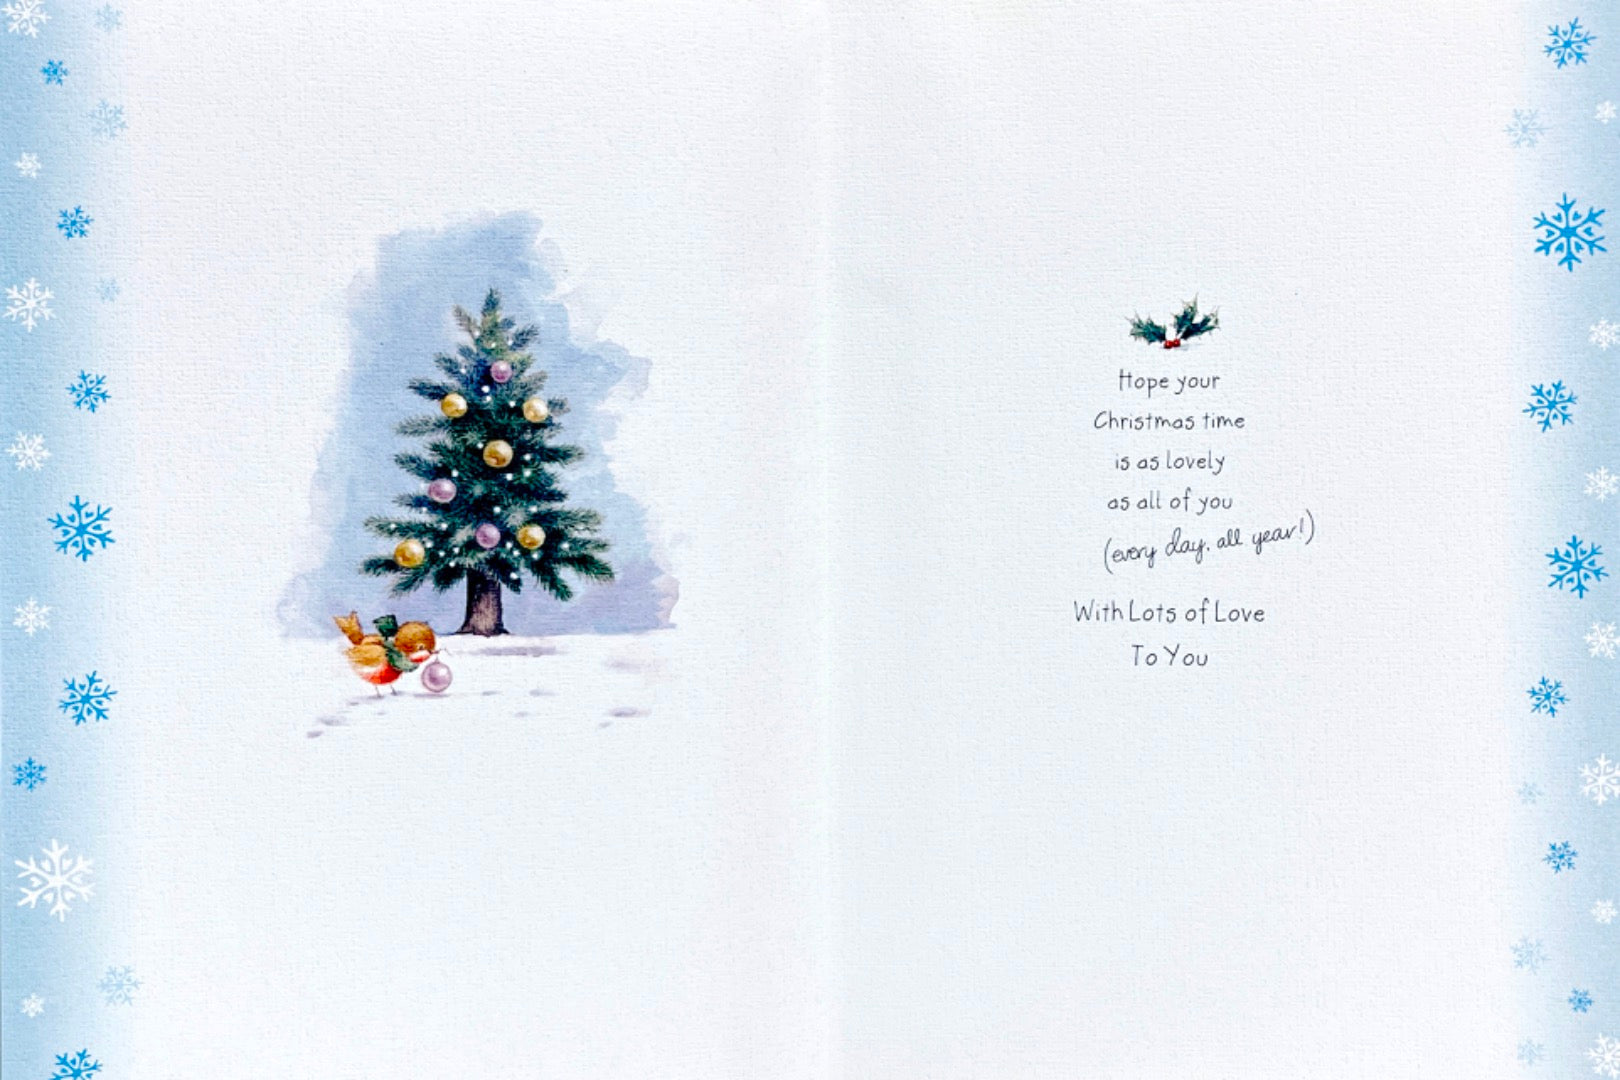 Hope your
Christmas time
is as lovely
as all of you
(every day, all year!)
With Lots of Love
To You